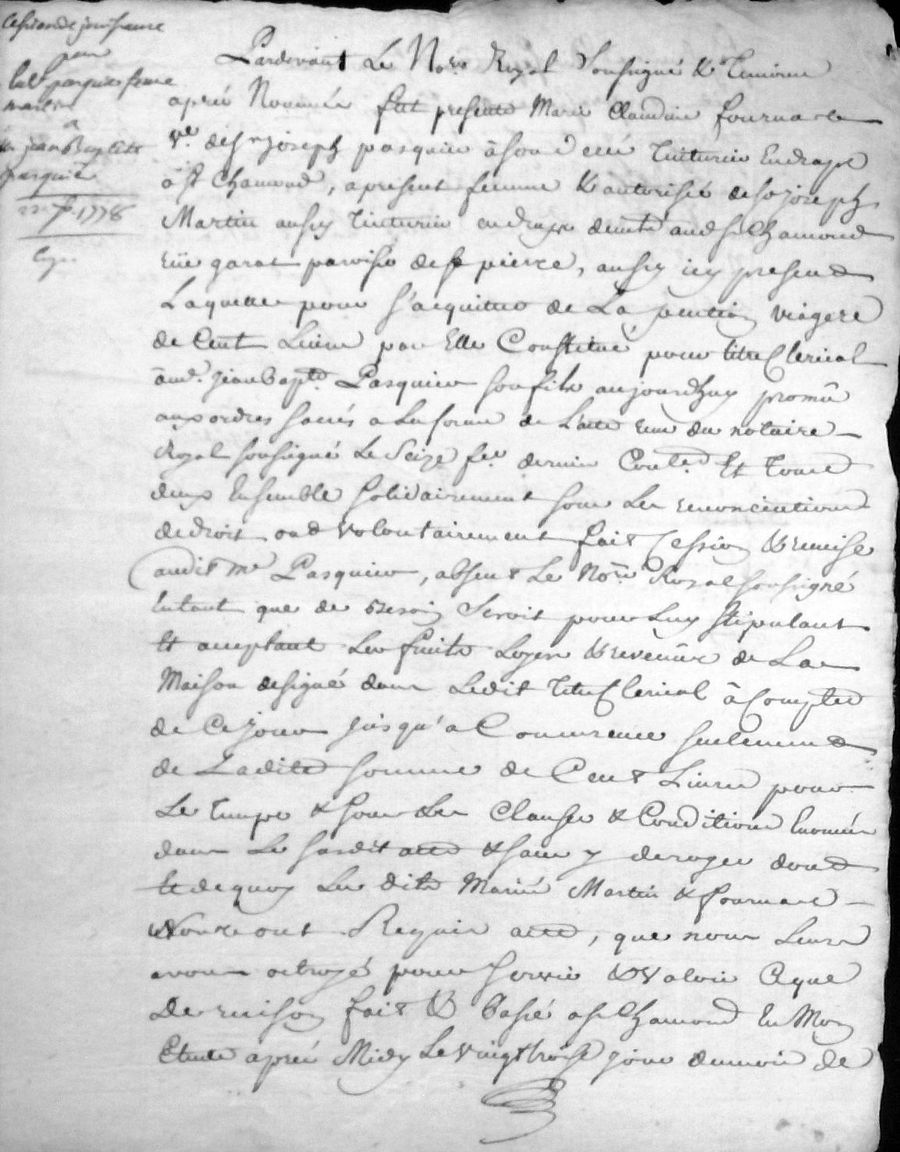 Cession de jouissance
par
martin
a
jean Baptiste
pasquier
22 7bre 1778
Pardevant Le No.re Royal Soussigné & Temoins
après Nommés fut presente Marie Claudine fournare
ve. de Sr joseph pasquier à son decé Tinturier En draps
à St Chamond, apresent femme & autorisée de Sr joseph
Martin aussy Tinturier en draps demte audt St Chamond
rüe garat paroisse de St pierre, aussy icy present
Laquelle pour s'acquitter de La pention viagere
de Cent Livres par Elle Constitué pour titre Clerical
à md. Jean Bapte Pasquier son fils aujourdhuy promû
aux ordres sacrés a La forme de L'acte reçu du notaire
Royal soussigné Le Seize fer. dernier Conlé Et Tous
deux Ensemble solidairement sous Les renonciations
de droit ont volontairement fait Cession & remise
audit me Pasquier, absent Le No.re Royal soussigné
Entant que de besoin Seroit pour Luy stipulant
Et acceptant Les fruits Loyers & revenüs de La
Maison designé dans Ledit Titre Clerical à Compter
de Ce jour jusqu'a Concurence seulement
de Ladite somme de Cent Livres pour
Le Temps & sous Les Clauses & Conditions Enoncés
dans Le susdit acte & sans y deroger dont
Et de quoy Les dits Mariés Martin & fournare
Nous ont Requis acte, que nous Leurs
avons octroyé pour servir & valoir Ce que
De raison fait & passé a St Chamond En Mon
Etude après Midy Le vingt trois jour du mois de